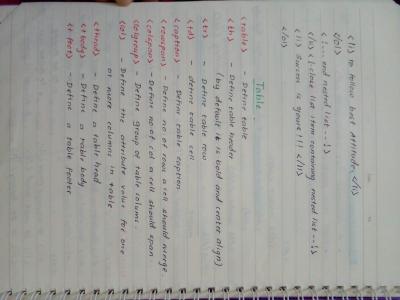 <li> to follow best Attitude </li>
</ol>
<!-- end nested list --!>
</li> <!-close list item containing nested list --!>
<li> success is yours !!! </li>
</ol>
Table
<table> - Define table
<th> - Define table header
(by default it is bold and center align)
<tr> - Define table row
<td> - define table cell
<caption> - Define table caption
<rowspan> - Define no of rows a cell should merge
<colspan> - Define no of col a cell should span
<colgroup> - Define group of table colums.
<col> - Define the attribute value for one
or more columns in table
<thead> - Define a table head
<tbody> - Define a table body
<tfoot> - Define a table footer